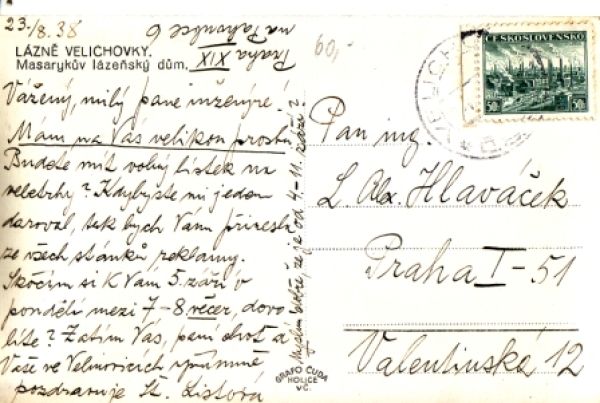 23./8. 38
Praha XIX
na
6
60,-
LÁZNĚ VELICHOVKY.
Masarykův lázeňský dům.
Vážený, milý pane inženýre!
Mám na Vás velikou prosbu
Budete mít volný lístek na
veletrhy? Kdybyste mi jeden
daroval, tak bych Vám přinesla
ze všech stánků reklamy.
Skočím si k Vám 5. září v
pondělí mezi 7-8 večer, dovo
líte? Zatím Vás, paní choť a
Vaše ve upřímně
pozdravuje
že je od 4.-11. září?
ČESKOSLOVENSKO
Pan ing.
L. Alex. Hlaváček
Praha I-51
Valentinská 12
GRAFO ČUDA
HOLICE
V Č.